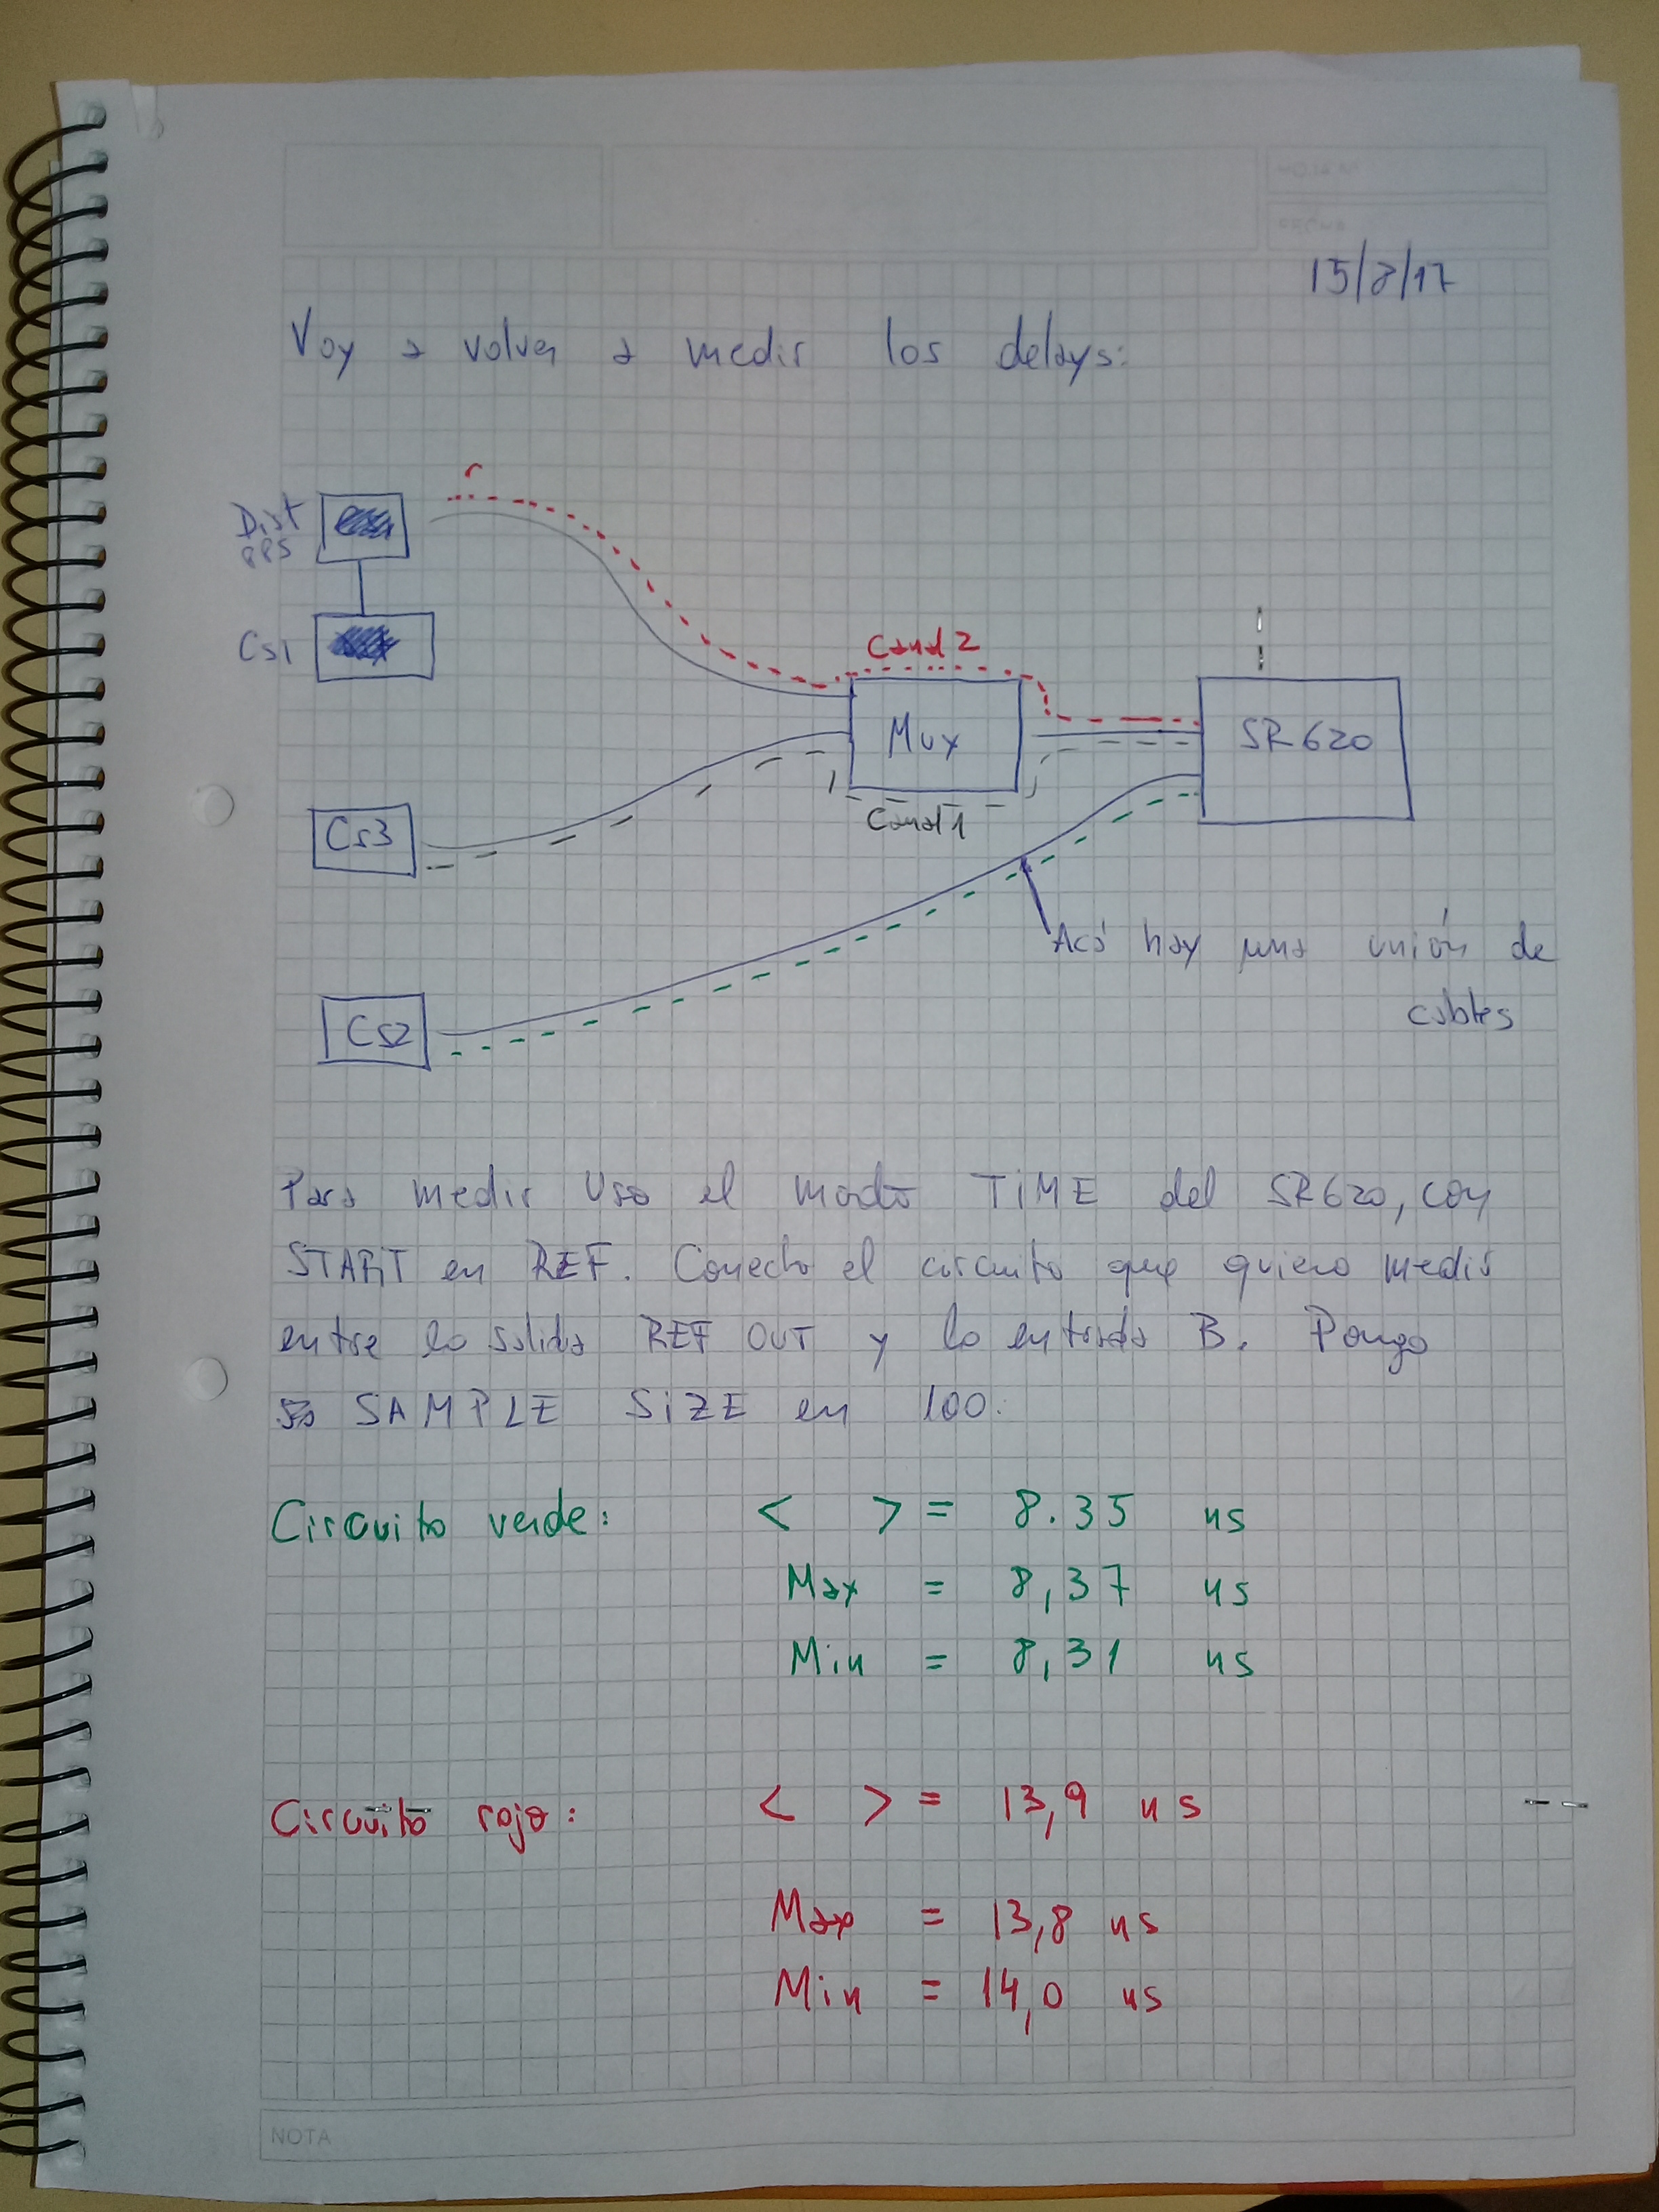 15/8/17
Voy a volver a medir los delays:
r
Dist
PPS
Cs1
Canal 2
Mux
SR620
Canal 1
Cs3
Acá hay una unión de
cables
Cs2
Para medir uso el modo TIME del SR620, con
START en REF. Conecto el circuito que quiero medir
entre la salida REF OUT y la entrada B. Pongo
SAMPLE SIZE en 100.
Circuito verde: < > = 8.35 ns
Max = 8,37 ns
Min = 8,31 ns
Circuito rojo: < > = 13,9 ns
Max = 13,8 ns
Min = 14,0 ns
NOTA